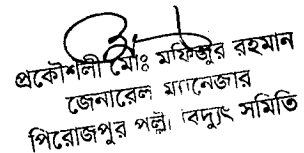 প্রকৌশলী মোঃ মফিজুর রহমান
জেনারেল ম্যানেজার
পিরোজপুর পল্লী বিদ্যুৎ সমিতি